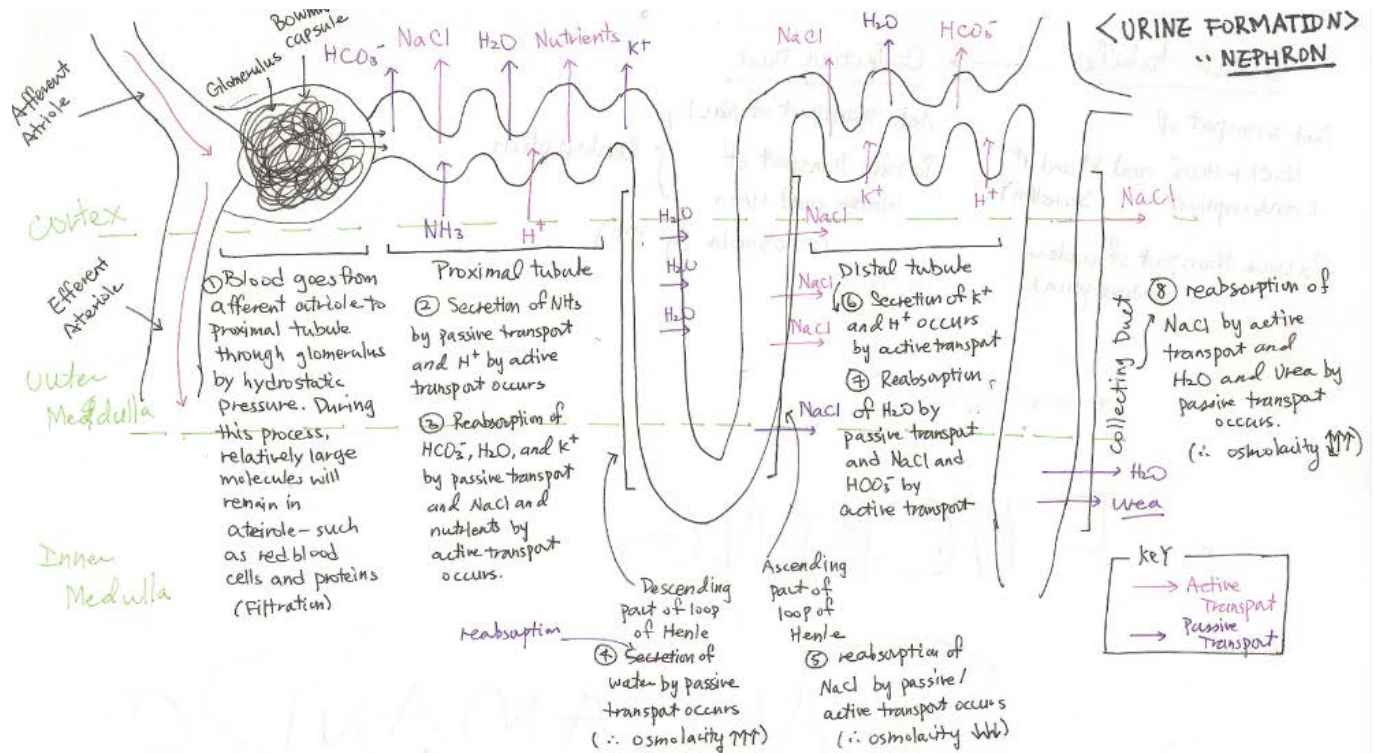 <URINE FORMATION>
NEPHRON
Bowman
capsule
Glomerulus
Afferent
Atriole
Efferent
Aterriole
HCO3-
NaCl
H2O
Nutrients
K+
NaCl
H2O
HCO3-
NH3
H+
K+
H+
NaCl
Cortex
Outer
Medulla
Inner
Medulla
① Blood goes from
afferent atriole to
proximal tubule
through glomerulus
by hydrostatic
pressure. During
this process,
relatively large
molecules will
remain in
ateirole - such
as red blood
cells and proteins
(Filtration)
Proximal tubule
② Secretion of NH3
by passive transport
and H+ by active
transport occurs
③ Reabsorption of
HCO3-, H2O, and K+
by passive transport
and NaCl and
nutrients by
active transport
occurs.
H2O
H2O
H2O
Descending
part of loop
of Henle
reabsorption
④ Secretion of
water by passive
transport occurs
(∴ osmolarity ↑↑↑)
NaCl
NaCl
NaCl
NaCl
Ascending
part of
loop of
Henle
⑤ reabsorption of
NaCl by passive/
active transport occurs
(∴ osmolarity ↓↓↓)
Distal tubule
⑥ Secretion of K+
and H+ occurs
by active transport
⑦ Reabsorption
of H2O by
passive transport
and NaCl and
HCO3- by
active transport
Collecting Duct
⑧ reabsorption of
NaCl by active
transport and
H2O and Urea by
passive transport
occurs.
(∴ osmolarity
H2O
urea
KEY
Active
Transport
Passive
Transport